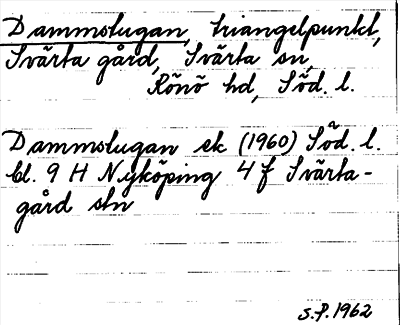 Dammstugan, triangelpunkt,
Svärta gård, Svärta sn,
Rönö hd, Söd. l.
Dammstugan ek (1960) Söd. l.
bl. 9 H Nyköping 4 f Svärta-
gård stn
S.P. 1962